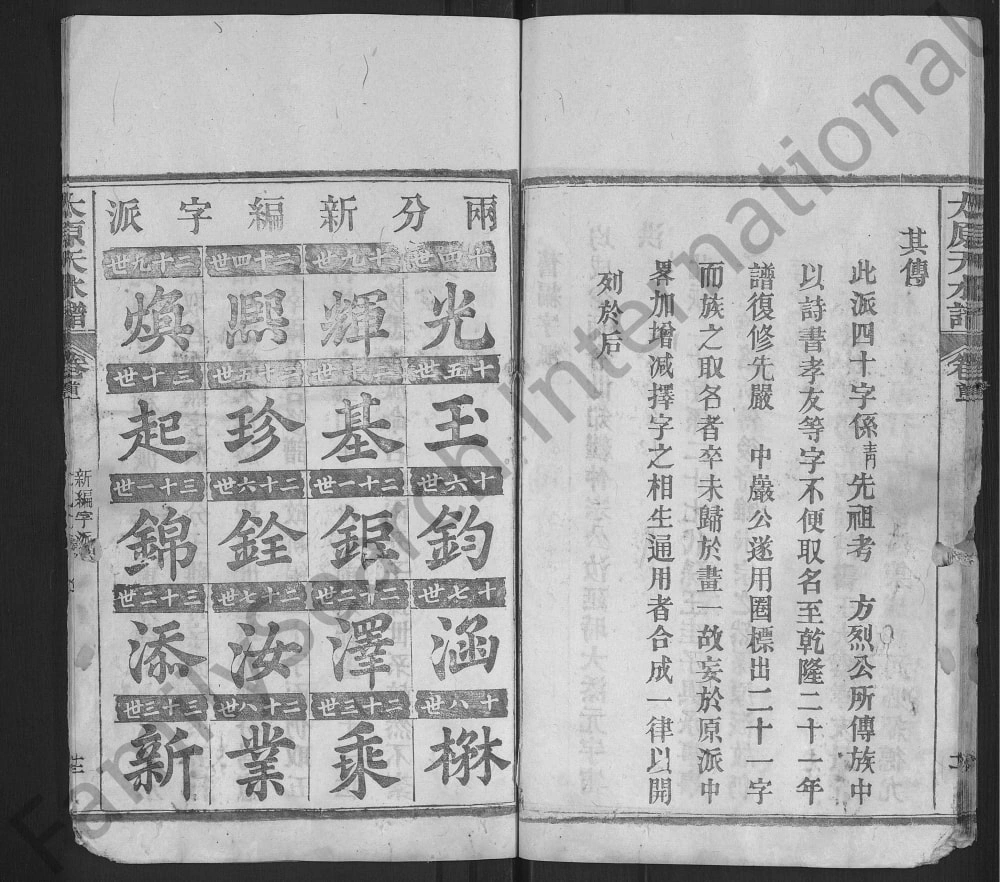 太原天水譜
卷首
其傳
此派四十字係靑先祖考　方烈公所傳族中
以詩書孝友等字不便取名至乾隆二十一年
譜復修先嚴　中嚴公遂用圈標出二十一字
而族之取名者卒未歸於畫一故妄於原派中
畧加增減擇字之相生通用者合成一律以開
列於后
兩分新編字派
十四世　十九世　二十四世　二十九世
光　輝　熙　煥
十五世　二十世　二十五世　三十世
玉　基　珍　起
十六世　二十一世　二十六世　三十一世
鈞　鉅　銓　錦
十七世　二十二世　二十七世　三十二世
涵　澤　汝　添
十八世　二十三世　二十八世　三十三世
楙　乘　業　新
太原天水譜
卷首
新編字派
十三
FamilySearch International